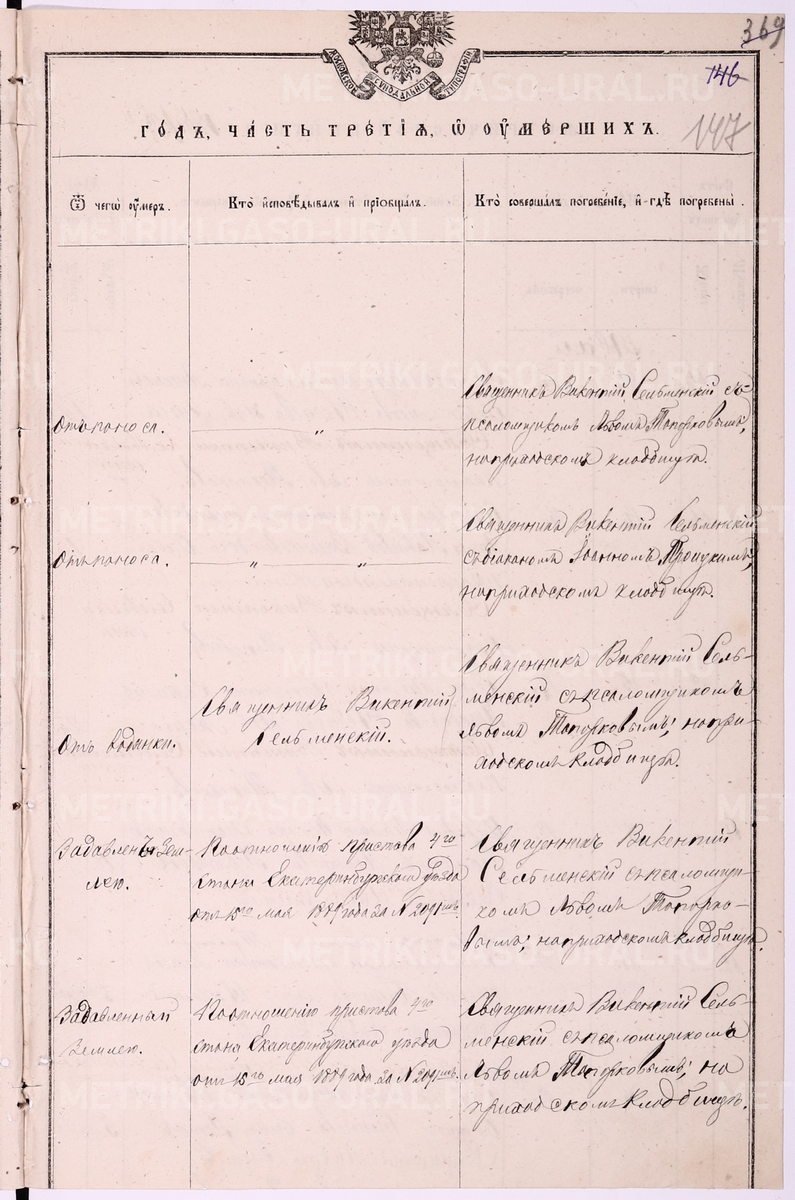 369
146
147
МОСКОВСКОЙ СѴНОДАЛЬНОЙ ТИПОГРАФІИ
ГО́ДЪ, ЧА́СТЬ ТРЕ́ТІѦ, Ѡ ОУМЕ́РШИХЪ.
Ѿ чегѡ̀ оу҆́меръ.
Кто̀ и҆сповѣ́дывалъ и҆ пріѡбща́лъ.
Кто̀ соверша́лъ погребе́нїе, и҆ гдѣ̀ погребены̀.
Отъ поноса.
"
Священникъ Викентій Сельменскій съ
псаломщикомъ Львомъ Топорковымъ;
на приходскомъ кладбищѣ.
Отъ поноса.
" "
Священникъ Викентій Сельменскій
съ діакономъ Іоанномъ Троицкимъ;
на приходскомъ кладбищѣ.
Отъ водянки.
Священникъ Викентій
Сельменскій.
Священникъ Викентій Сель-
менскій съ псаломщикомъ
Львомъ Топорковымъ; на при-
ходскомъ кладбищѣ.
Задавленъ зем-
лею.
По отношенію пристава 4го
стана Екатеринбургскаго уѣзда
отъ 15го мая 1889 года за №2091мъ.
Священникъ Викентій
Сельменскій съ псаломщи-
комъ Львомъ Топорко-
вымъ; на приходскомъ кладбищѣ.
Задавленный
землею.
По отношенію пристава 4го
стана Екатеринбургскаго уѣзда
отъ 15го мая 1889 года за №2091мъ.
Священникъ Викентій Сель-
менскій съ псаломщикомъ
Львомъ Топорковымъ; на
приходскомъ кладбищѣ.
METRIKI.GASO-URAL.RU